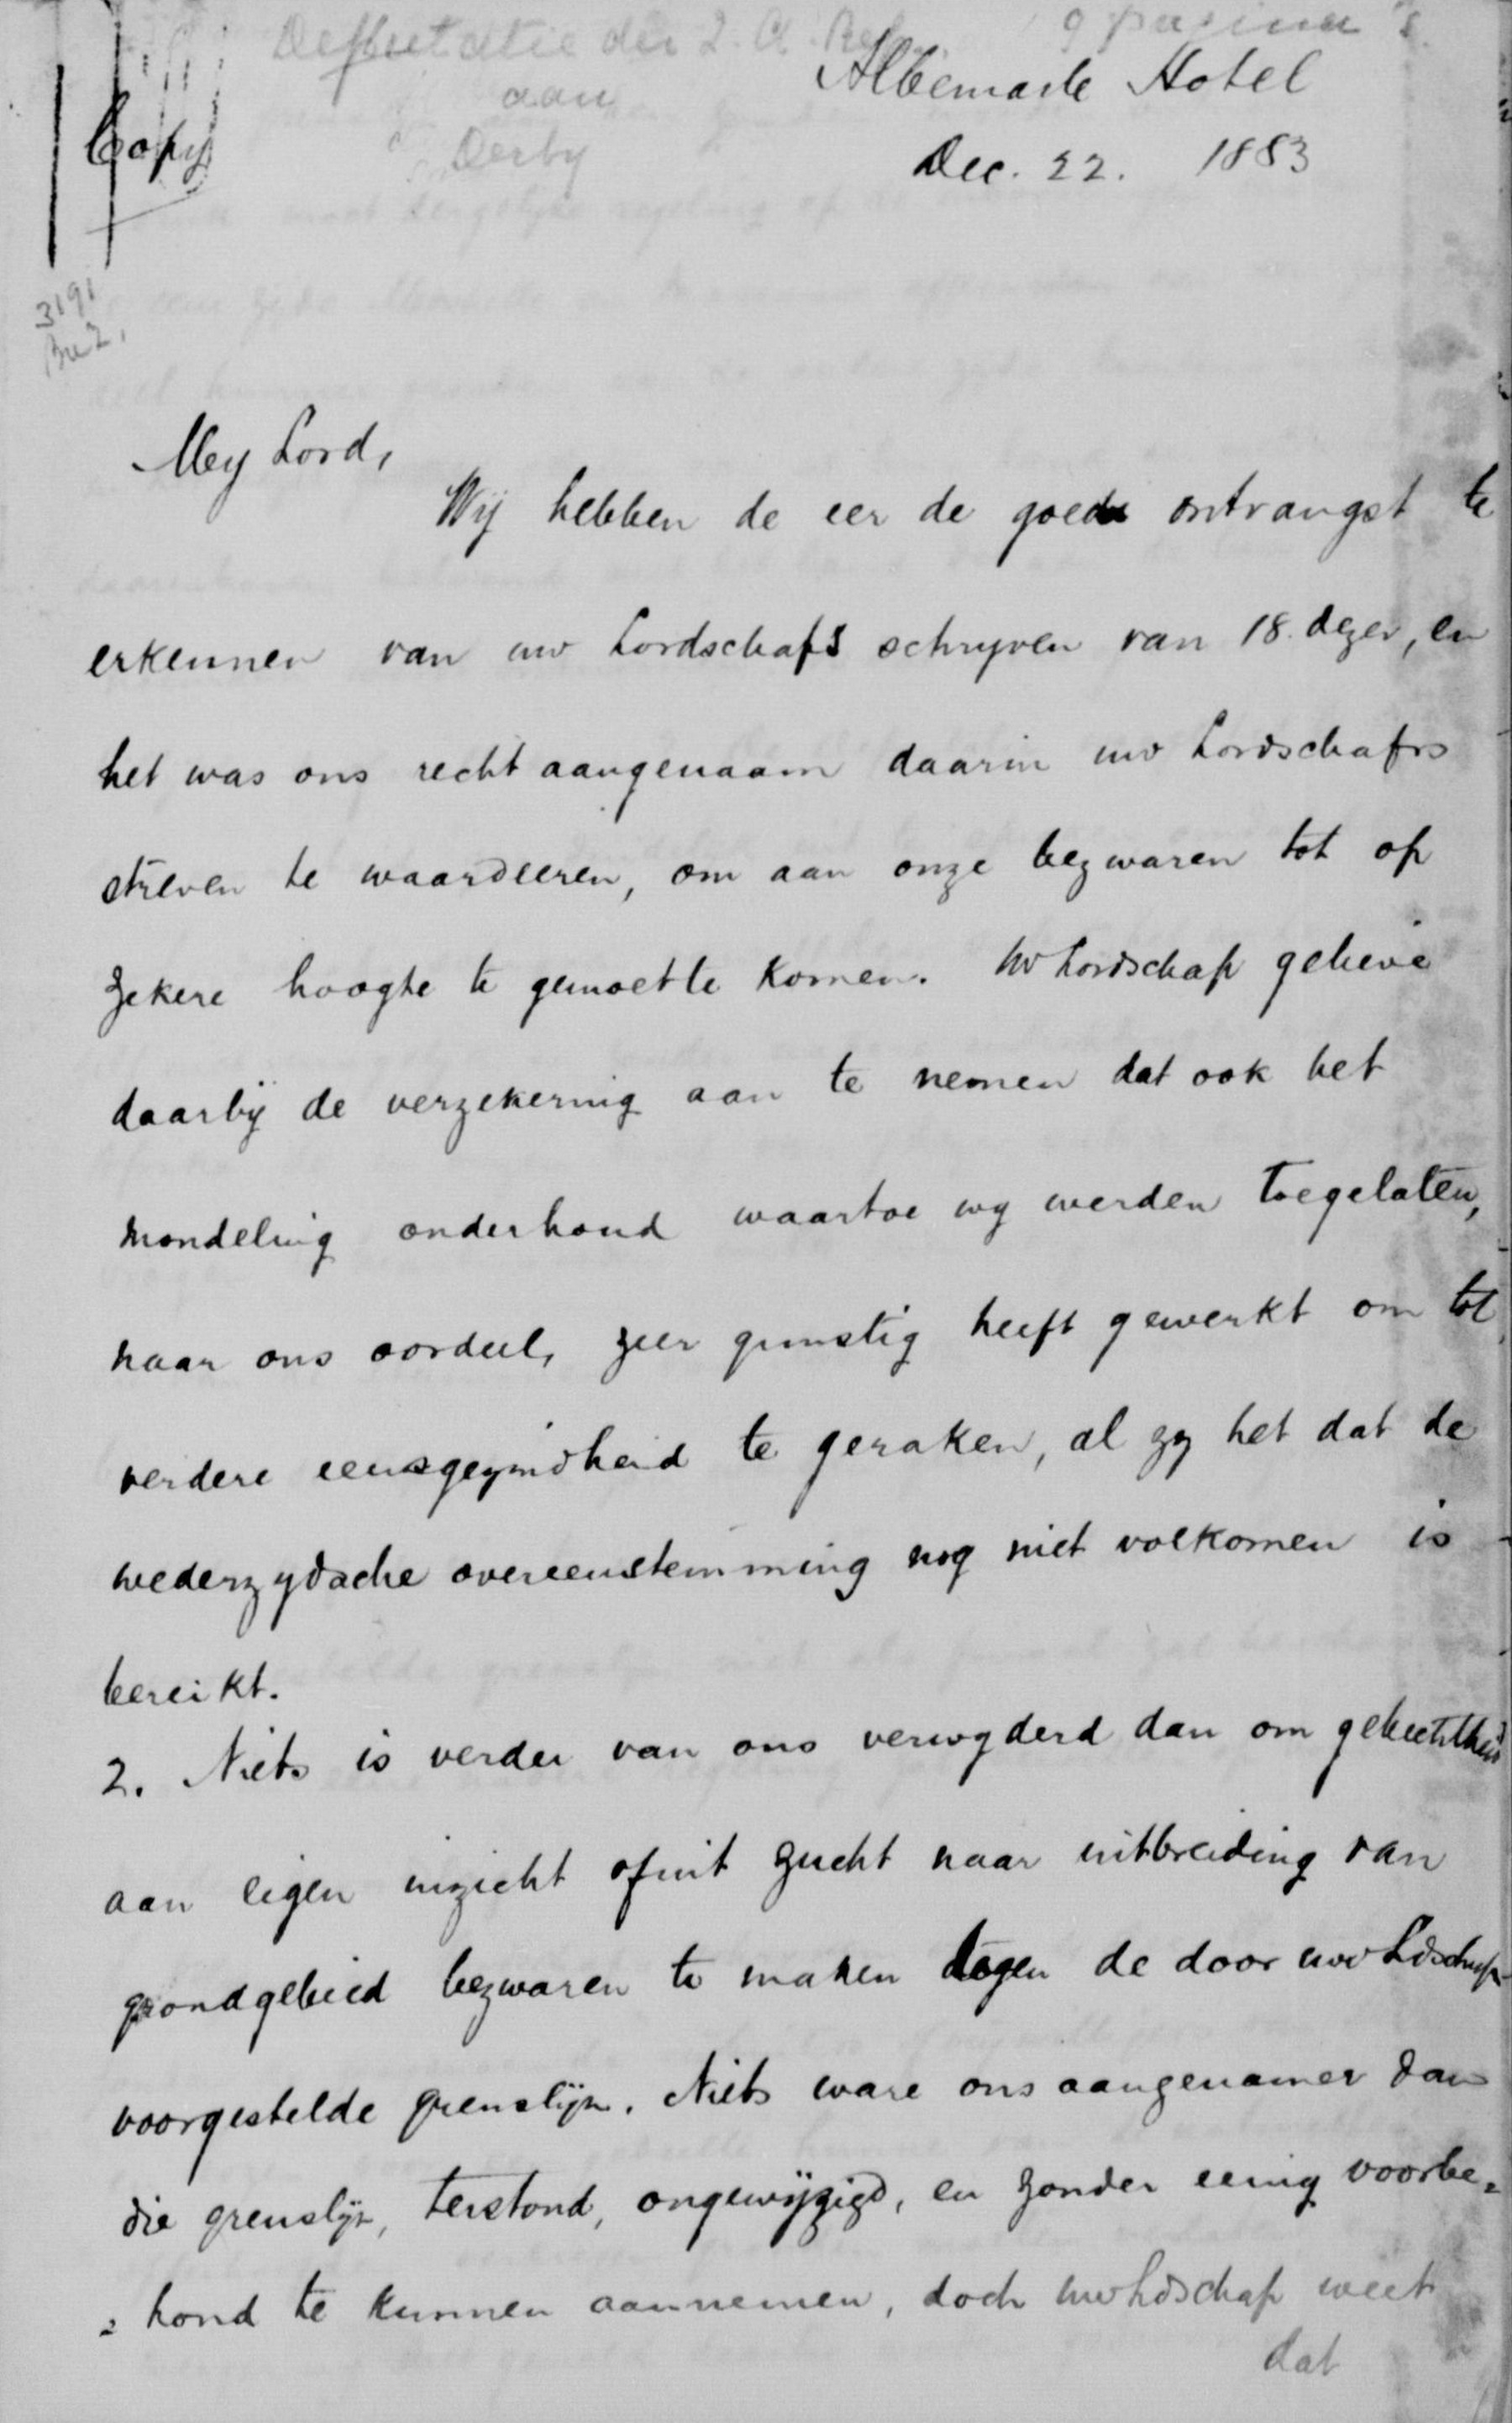 Deputatie der Z. A. Rep. 9 pagina's.
aan
Derby
Albemarle Hotel
Dec. 22. 1883
Copy
3191
My Lord,
Wij hebben de eer de goede ontvangst te
erkennen van uw Lordschaps schryven van 18. dezer, en
het was ons recht aangenaam daarin uw Lordschaps
streven te waardeeren, om aan onze bezwaren tot op
zekere hoogte te gemoet te komen. Uw Lordschap gelieve
daarbij de verzekering aan te nemen dat ook het
mondeling onderhoud waartoe wy werden toegelaten,
naar ons oordeel, zeer gunstig heeft gewerkt om tot
verdere eensgezindheid te geraken, al zy het dat de
wederzydsche overeenstemming nog niet volkomen is
bereikt.
2. Niets is verder van ons verwyderd dan om gehechtheid
aan eigen inzicht of uit zucht naar uitbreiding van
grondgebied bezwaren te maken tegen de door uw Ldschap
voorgestelde grenslijn. Niets ware ons aangenamer dan
die grenslijn, terstond, ongewijzigd, en zonder eenig voorbe=
= houd te kunnen aannemen, doch uw Ldschap weet
dat